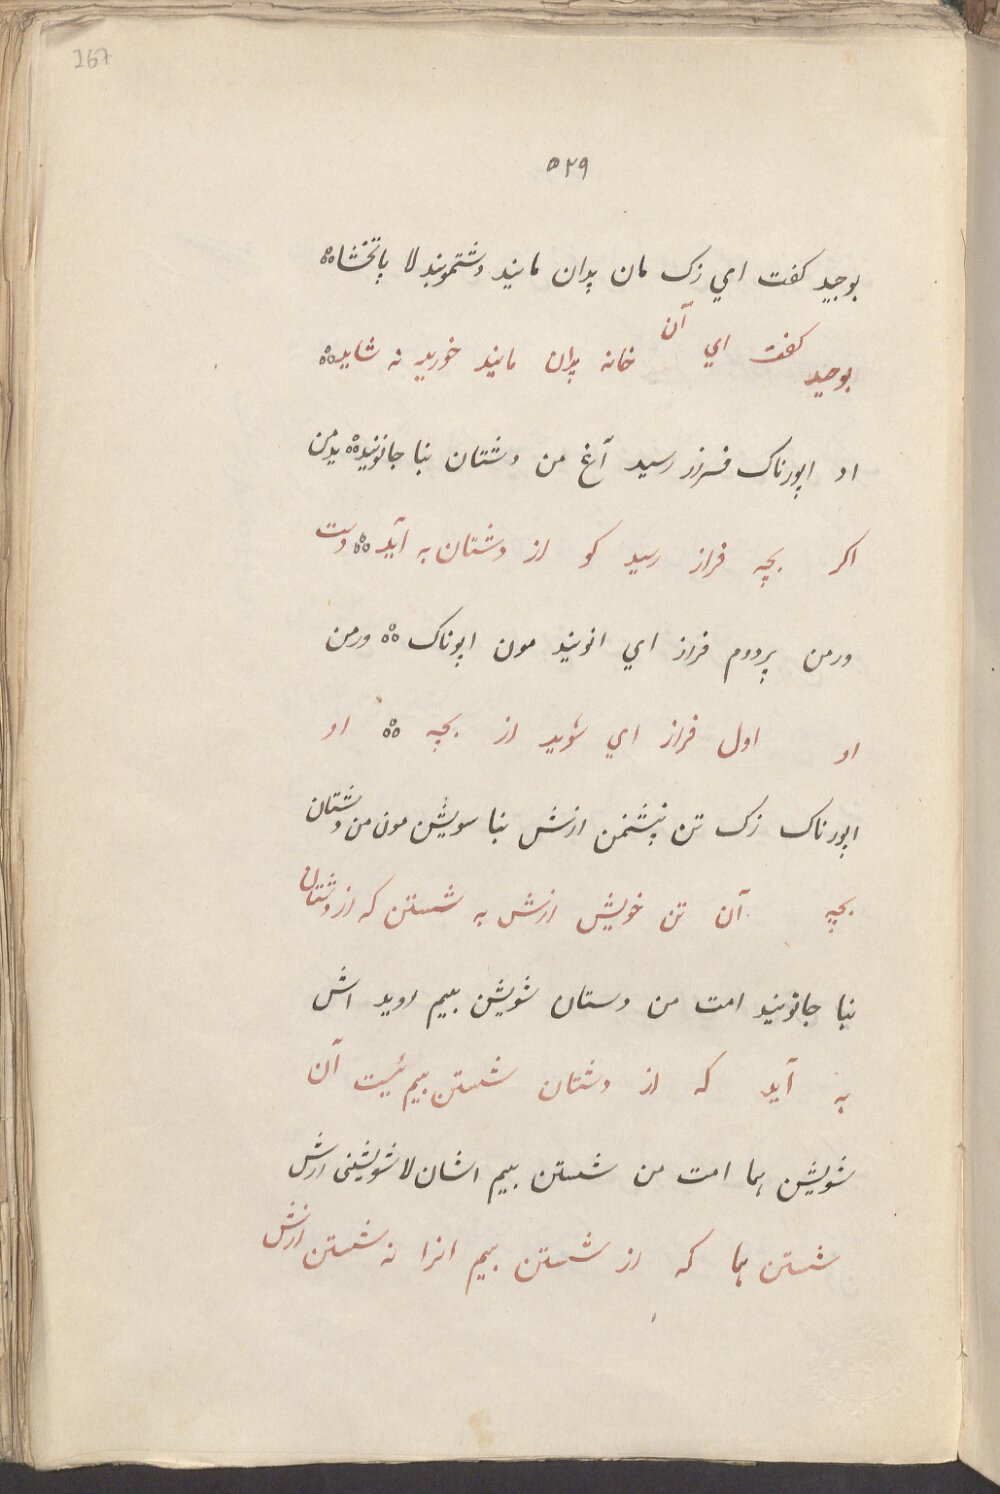 167
٥٢٩
بوجید کفت اي زک مان پدان مانید دشتموند لا پاتخشاه ؞
بوحید کفت اي آن خانه پدان مانید خورید نه شاید ؞
اد اپورناک فراز رسید آغ من دشتان بنا جاتونید ؞ یدمن
اکر بچه فراز رسید کو از دشتان به آید ؞ دست
ورمن پردوم فراز اي انویند مون اپوناک ؞ ورمن
او اول فراز اي شوید از بچه ؞ او
اپورناک زک تن نپشمن ازش بنا سویشن مون من دشتان
بچه آن تن خویش ازش به شستن که از دشتان
بنا جاتونید امت من دستان شویشن بیم روید اش
به آید که از دشتان شستن بیم نیست آن
شویشن هما امت من شستن بیم اشان لا شویشنی ازش
شستن هما که از شستن بیم انرا نه شستن ازش